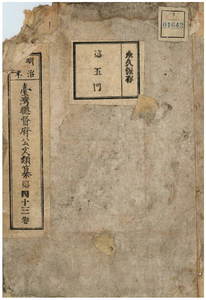 01642
永久保存
追五門
明治
臺灣總督府公文類纂追四十三卷